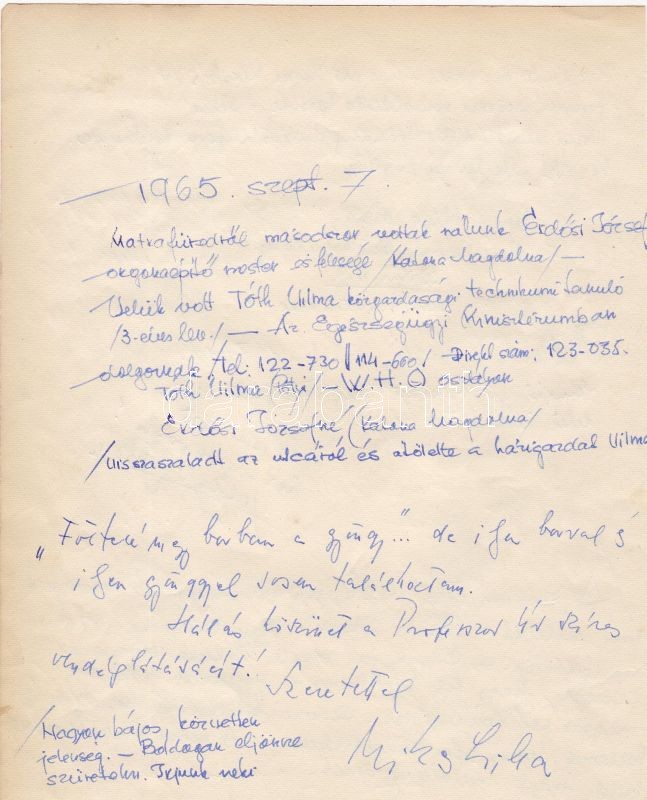 1965. szept. 7.
Mátrafüredről másodszor voltak nálunk Erdősi József
orgonaépítő mester és felesége /Katona Magdolna/ —
Velük volt Tóth Vilma közgazdasági technikumi tanuló
/3-éves lev./ — Az Egészségügyi Minisztériumban
dolgoznak /tel: 122-730 / 114-600/ Direkt szám: 123-035.
Tóth Vilma /Pötyi/ — W.H.O osztályon
Erdősi Józsefné /Katona Magdolna/
/Visszaszaladt az utcáról és átölelte a házigazdát Vilma
„Fölteré meg borban a gyöngy"... de ilyen borral s
ilyen gyönggyel sosem találkoztam.
Hálás köszönet a Professzor Úr szíves
vendéglátásáért!
Szeretettel
/Nagyon bájos, közvetlen
jelenség. — Boldogan eljönne
szüretelni. Írjunk neki